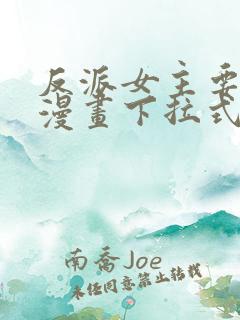 反派女主要
漫畫下拉式
南喬Joe
未经同意禁止转载